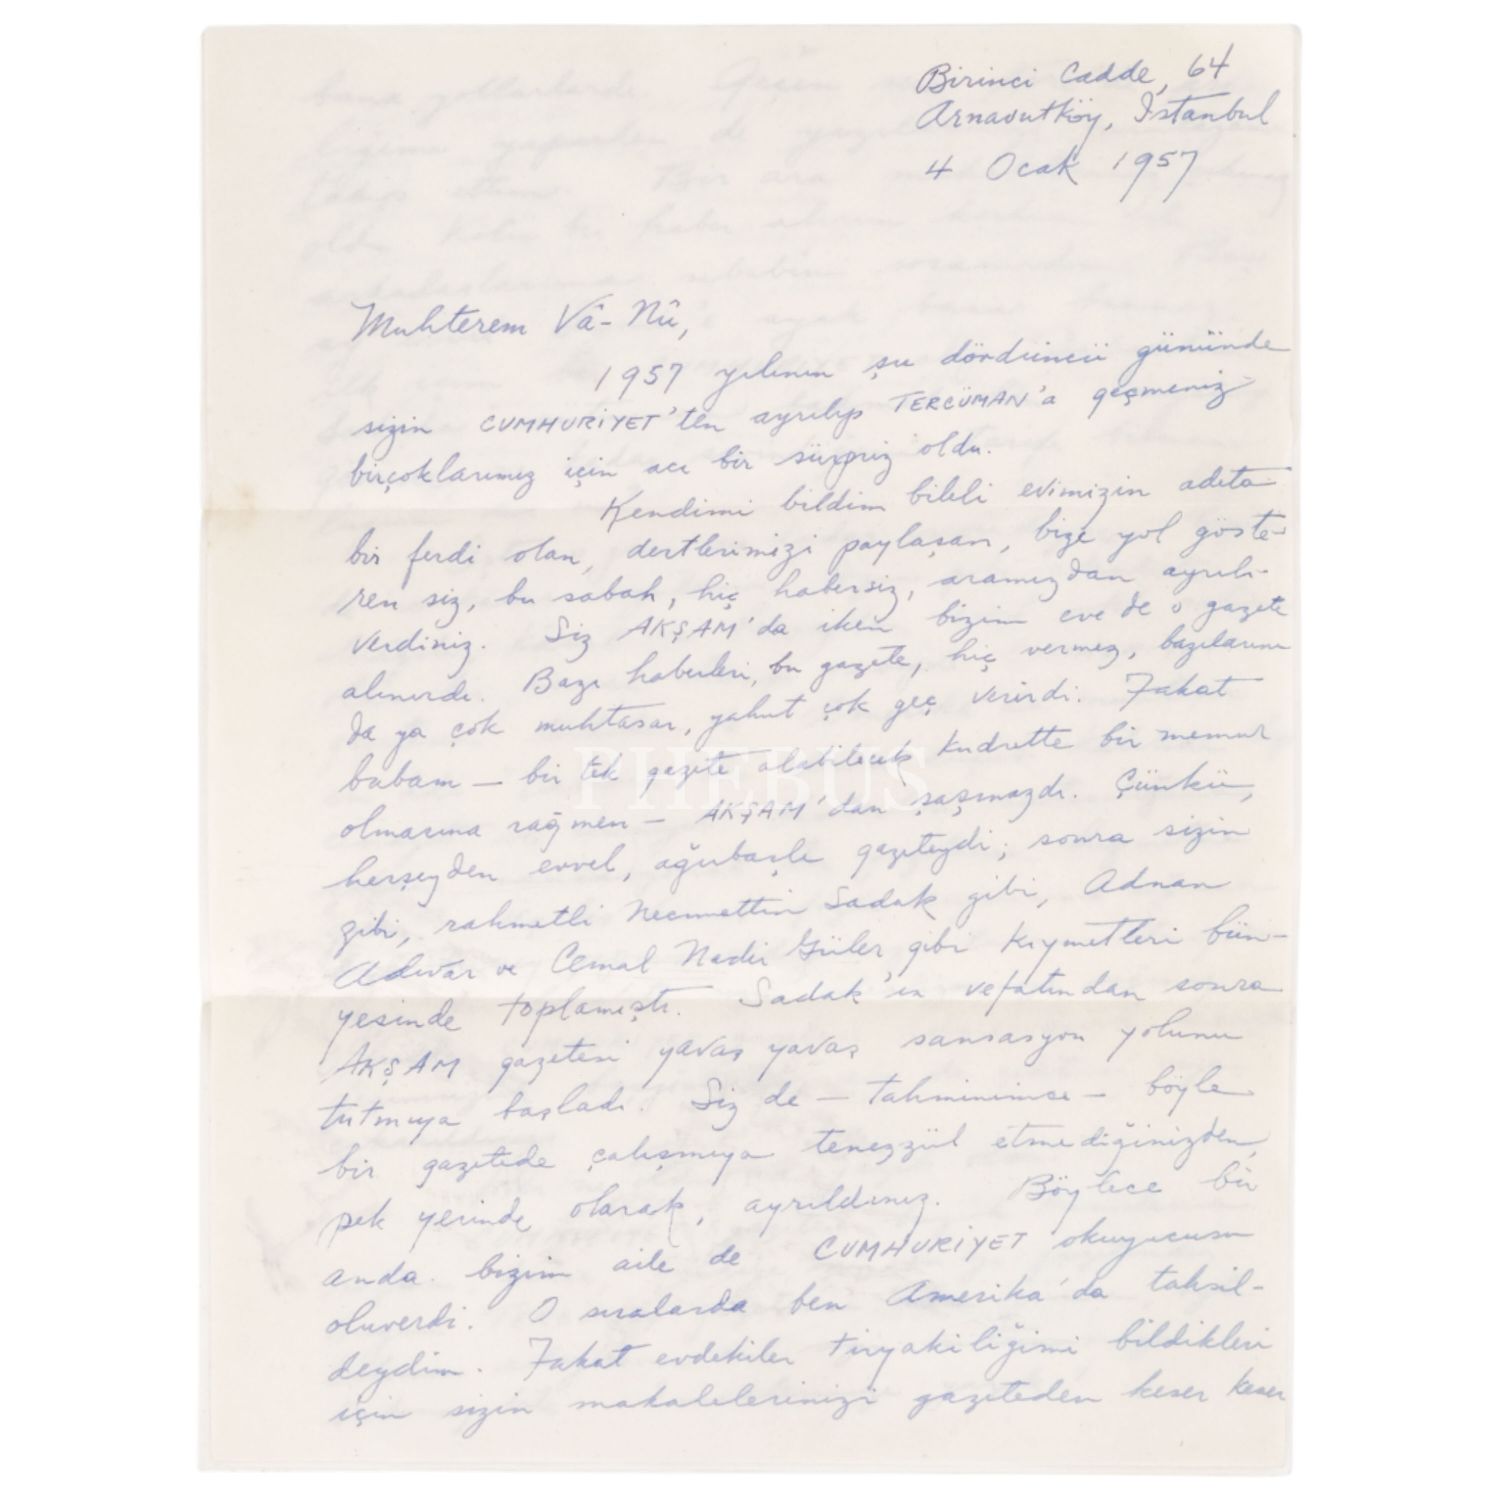 Birinci Cadde, 64
Arnavutköy, İstanbul
4 Ocak 1957
Muhterem Vâ-Nû,
1957 yılının şu dördüncü gününde
sizin CUMHURİYET'ten ayrılıp TERCÜMAN'a geçmeniz
birçoklarımız için acı bir sürpriz oldu.
Kendimi bildim bileli evimizin adeta
bir ferdi olan, dertlerimizi paylaşan, bize yol göste-
ren siz, bu sabah, hiç habersiz, aramızdan ayrılı-
verdiniz. Siz AKŞAM'da iken bizim eve de o gazete
alınırdı. Bazı haberleri, bu gazete, hiç vermez, bazılarını
da ya çok muhtasar, yahut çok geç verirdi. Fakat
babam — bir tek gazete alabilecek kudrette bir memur
olmasına rağmen — AKŞAM'dan şaşmazdı. Çünkü,
herşeyden evvel, ağırbaşlı gazeteydi; sonra sizin
gibi, rahmetli Necmettin Sadak gibi, Adnan
Adıvar ve Cemal Nadir Güler gibi kıymetleri bün-
yesinde toplamıştı. Sadak'ın vefatından sonra
AKŞAM gazetesi yavaş yavaş sansasyon yolunu
tutmıya başladı. Siz de — tahminimce — böyle
bir gazetede çalışmıya tenezzül etmediğinizden,
pek yerinde olarak, ayrıldınız. Böylece bir
anda bizim aile de CUMHURİYET okuyucusu
oluverdi. O sıralarda ben Amerika'da tahsil-
deydim. Fakat evdekiler tiryakiliğimi bildikleri
için sizin makalelerinizi gazeteden keser keser
PHEBUS